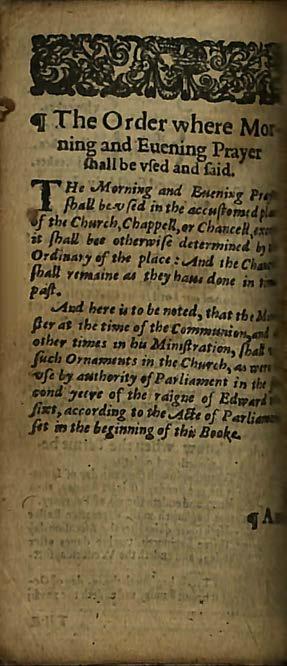 ¶ The Order where Mor
ning and Euening Prayer
shall be vsed and said.
THe Morning and Euening Pray
shall be vsed in the accustomed pla
of the Church, Chappell, or Chancell, exce
it shall bee otherwise determined by t
Ordinary of the place: And the Chan
shall remaine as they haue done in
past.
And here is to be noted, that the Mi
ster at the time of the Communion, and
other times in his Ministration, shall
such Ornaments in the Church, as were
vse by authority of Parliament in the
cond yeere of the raigne of Edward
sixt, according to the Acte of Parliamen
set in the beginning of this Booke.
¶ An